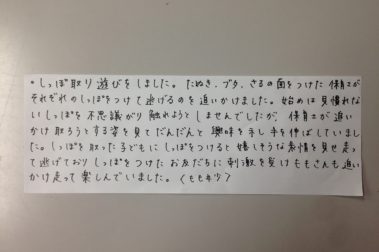 ・しっぽ取り遊びをしました。たぬき、ブタ、さるの面をつけた保育士が
それぞれのしっぽをつけて逃げるのを追いかけました。始めは見慣れな
いしっぽを不思議がり触れようとしませんでしたが、保育士が追い
かけ取ろうとする姿を見てだんだんと興味を示し手を伸ばしていまし
た。しっぽを取った子どもにしっぽをつけると嬉しそうな表情を見せ走っ
て逃げておりしっぽをつけたお友だちに刺激を受けももさんも追い
かけ走って楽しんでいました。